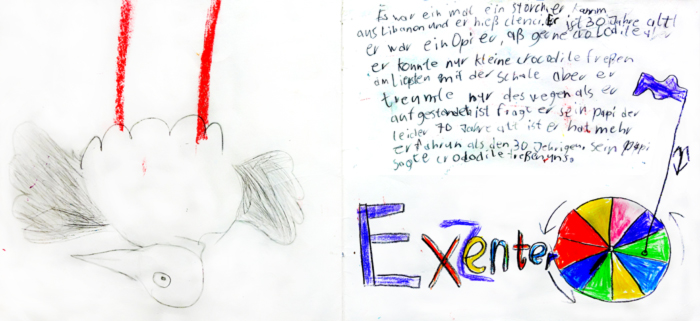 Es war ein mal ein storch er kamm
aus Libanon und er hieß clenci. Er ist 30 Jahre alt!
er war ein Opi er, aß gerne crocodile!
er konnte nur kleine crocodile freßen
am liepsten mit der schale aber er
treumte nur deswegen als er
aufgestanden ist fragt er sein papi der
leider 70 Jahre alt ist er hat mehr
erfahrun als den 30 Jehrigen sein papi
sagte crocodile freßen uns.
Exzenter